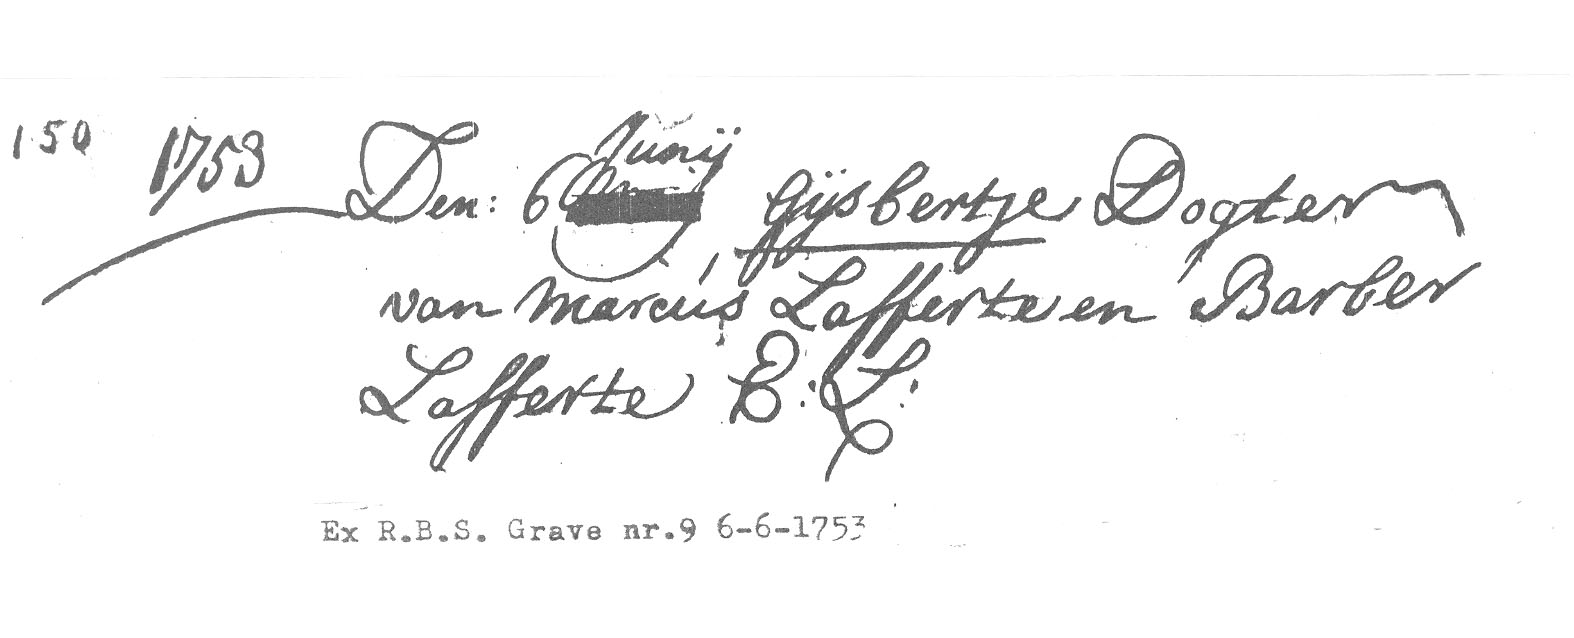 150 1753 Den: 6 Junij Gijsbertje Dogter
van Marcús Lafferte en Barber
Lafferte E: L:
Ex R.B.S. Grave nr.9 6-6-1753